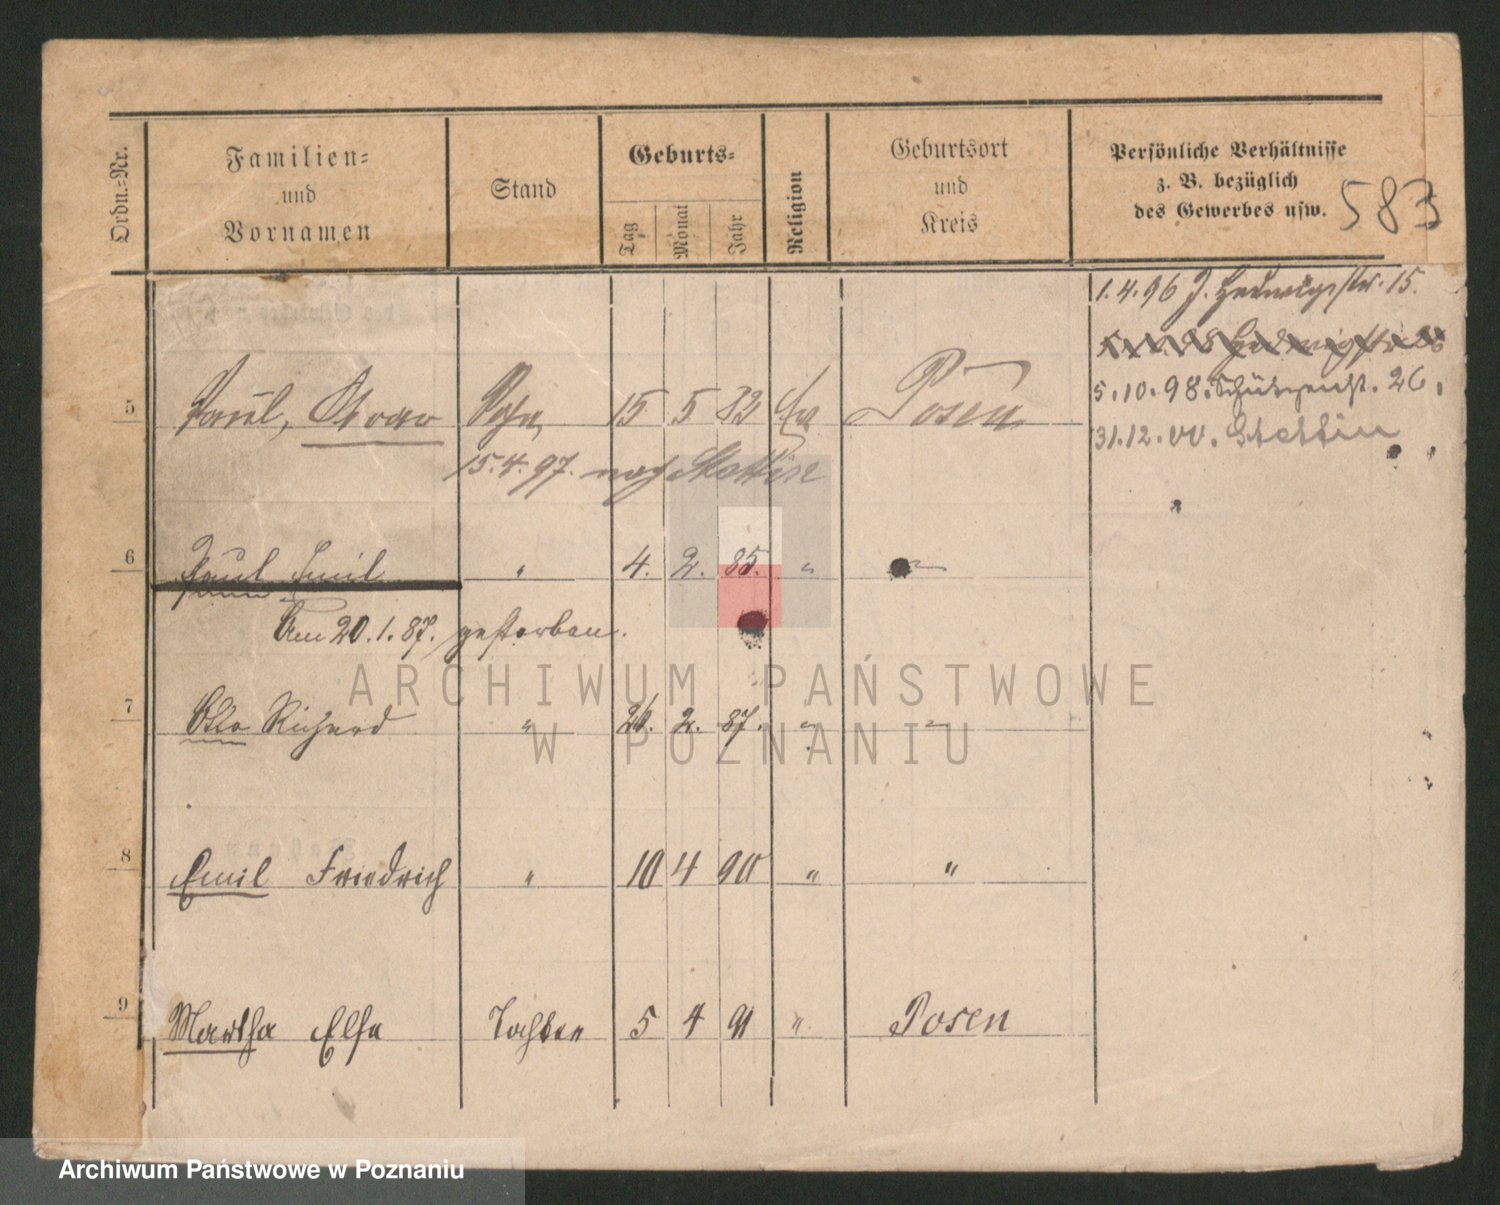 Ordn.-Nr.
Familien-
und
Vornamen
Stand
Geburts-
Tag
Monat
Jahr
Religion
Geburtsort
und
Kreis
Persönliche Verhältnisse
z. B. bezüglich
des Gewerbes usw.
583
1.4.96 J. Hedwigstr. 15.
5.10.98. Schützenst. 26.
31.12.00. Stettin
5 Paul, Oskar Sohn 15 5 82 Ev Posen
15.4.97. nach Stettin
6 Paul Emil " 4. 2. 85. "
Am 20.1.87. gestorben.
7 Otto Richard " 26. 2. 87. " "
8 Emil Friedrich " 10 4 90 " "
9 Martha Elsa Tochter 5 4 91 " Posen
ARCHIWUM PAŃSTWOWE
W POZNANIU
Archiwum Państwowe w Poznaniu